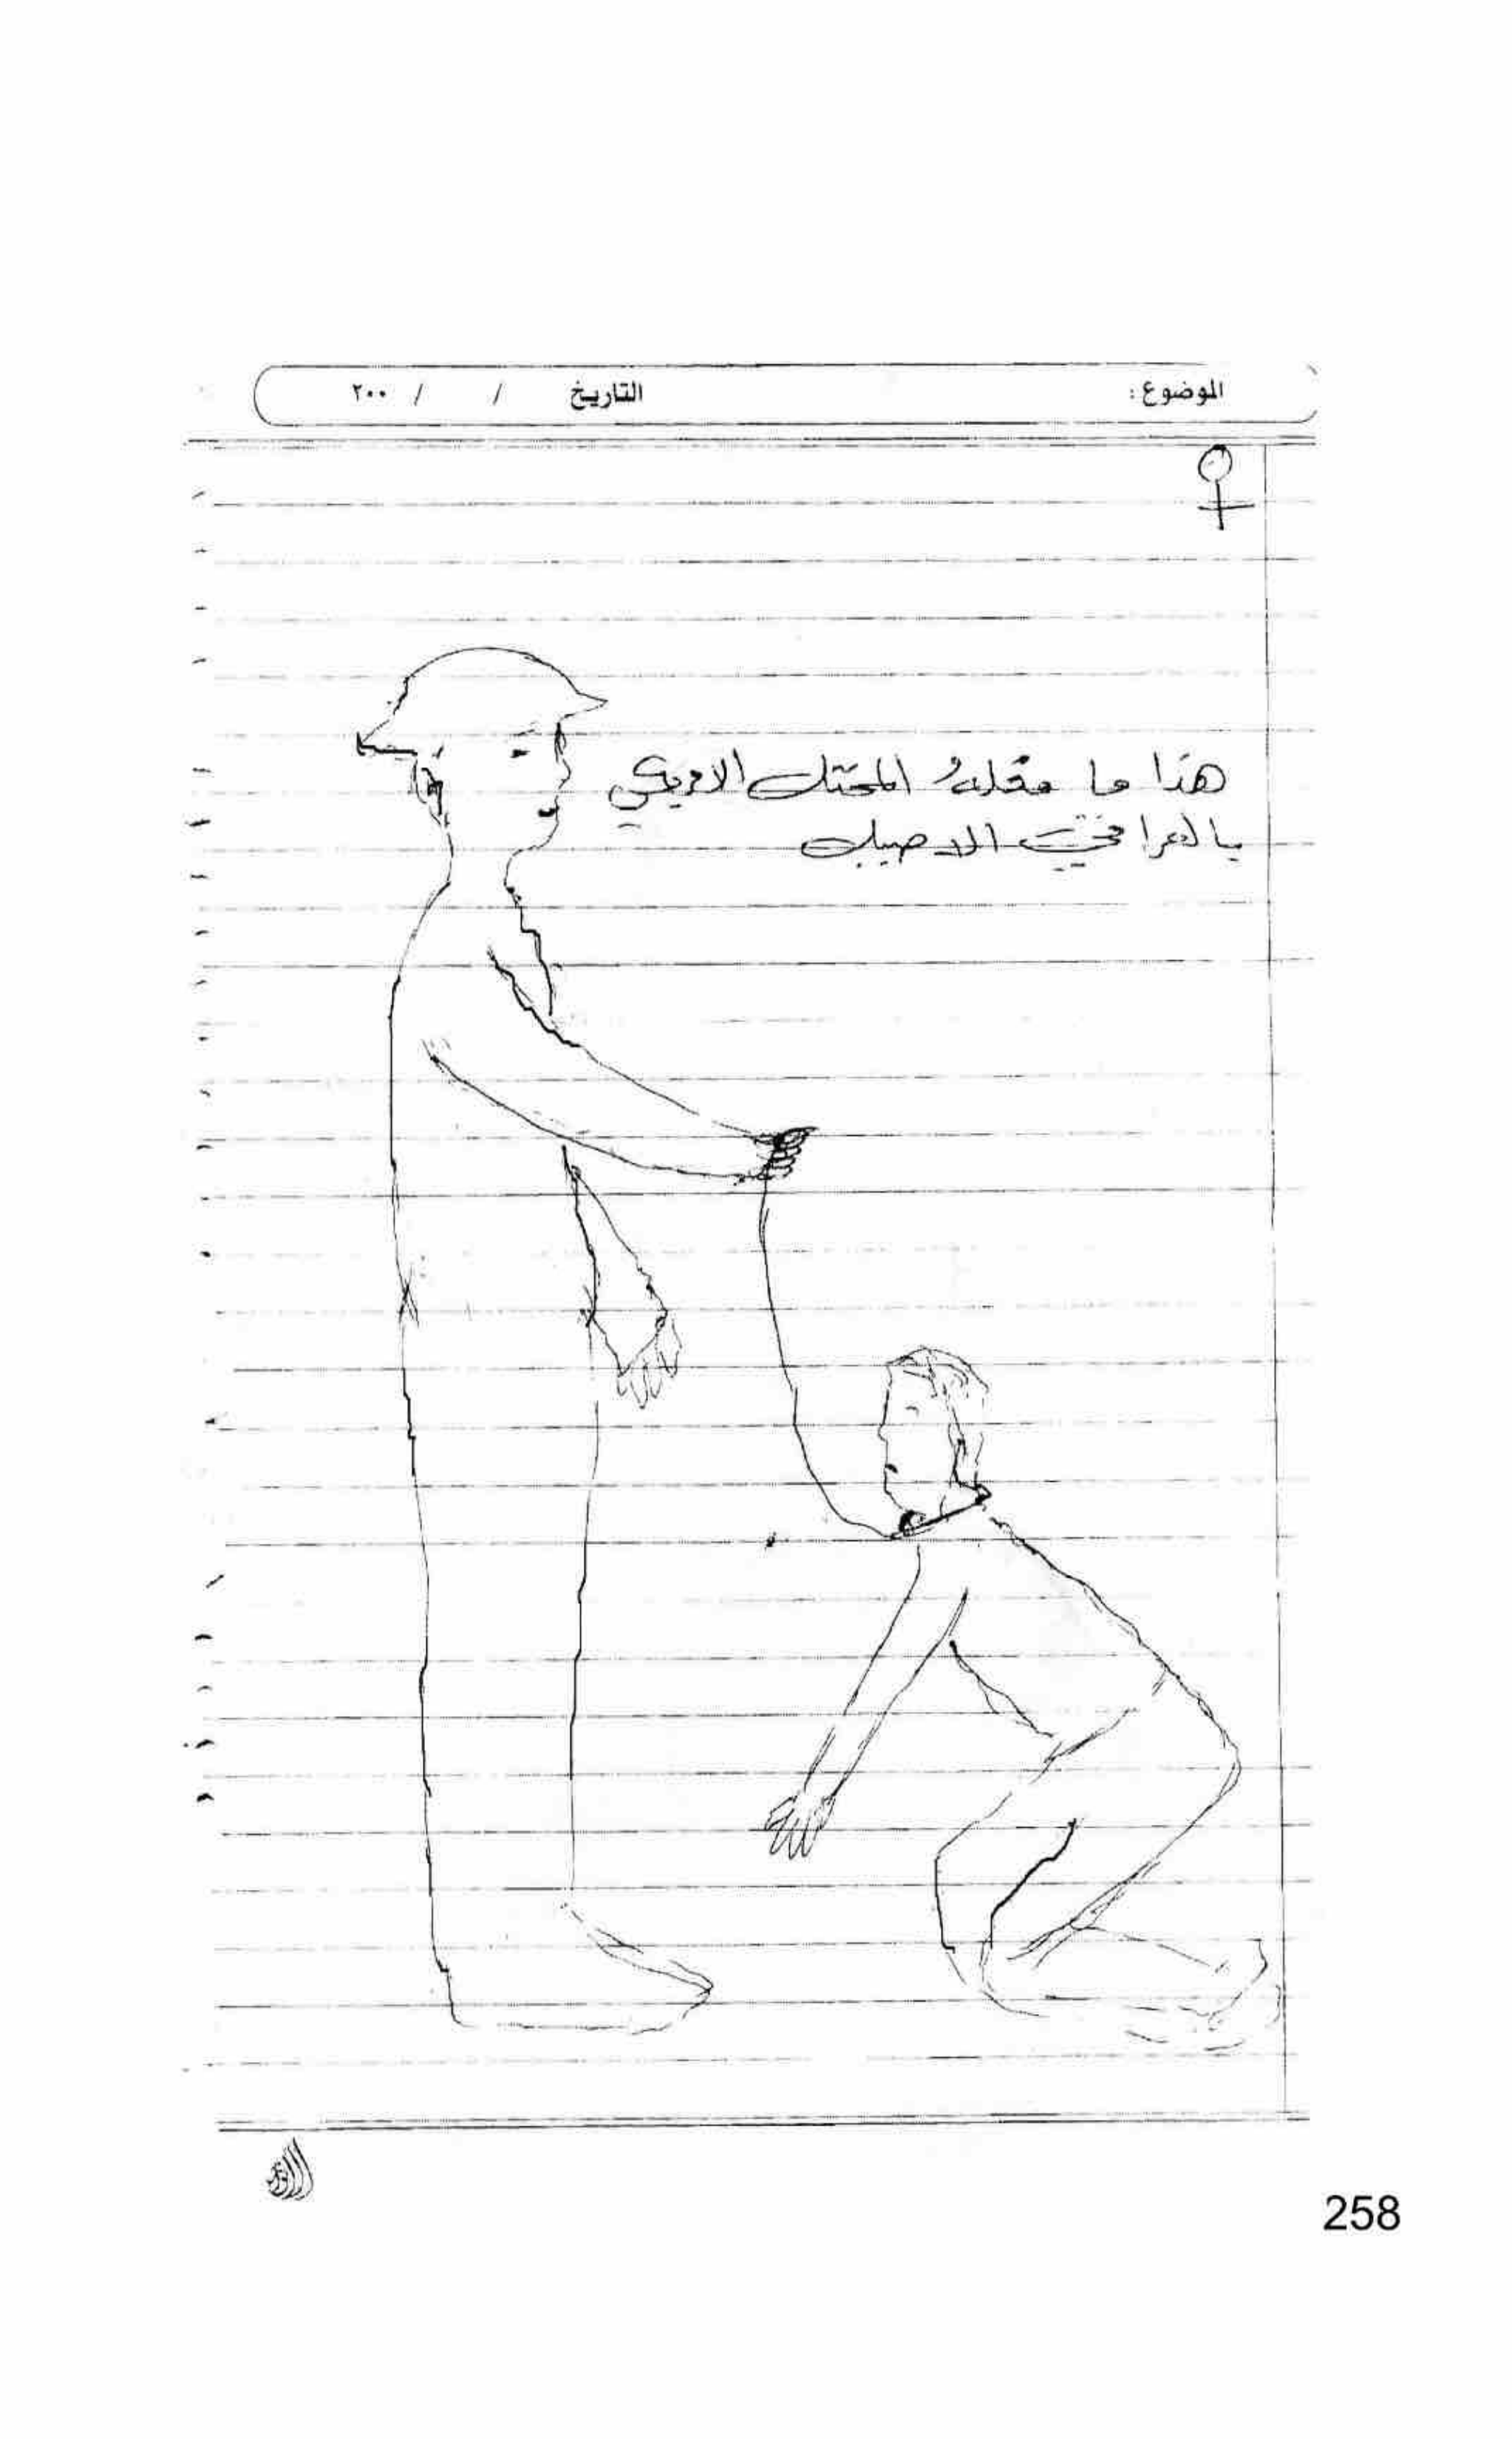 الموضوع :
التاريخ / / ٢٠٠
هذا ما فعله المحتل الامريكي
بالعراقي الاصيل
258